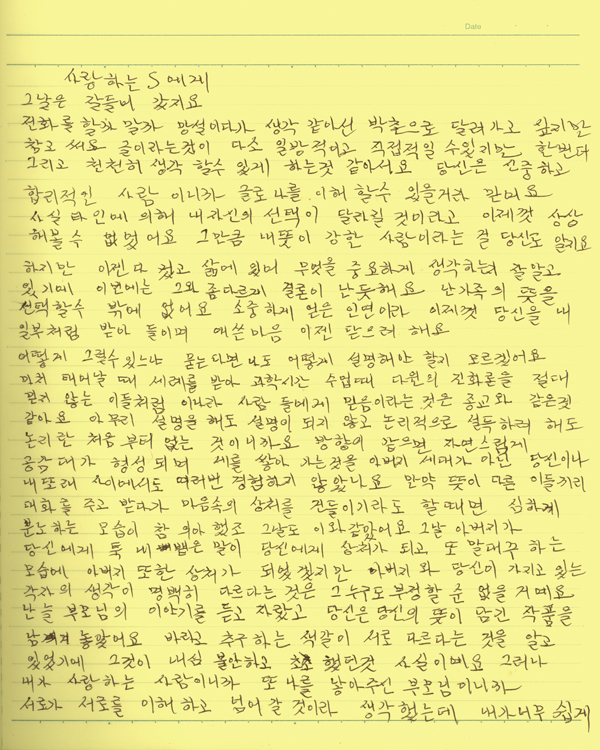 Date
사랑하는 S에게
그날은 잘들어 갔지요
전화를 할까 말까 망설이다가 생각 같아선 박촌으로 달려가고 싶지만
참고 써요 글이라는것이 다소 일방적이고 직접적일 수있지만 한번더
그리고 천천히 생각 할수 있게 하는것 같아서요 당신은 신중하고
합리적인 사람 이니까 글로 나를 이해 할수 있을거라 믿어요
사실 타인에 의해 내자신의 선택이 달라질 것이라고 이제껏 상상
해볼수 없었어요 그만큼 내뜻이 강한 사람이라는 걸 당신도 알지요
하지만 이젠 다 컸고 삶에 있어 무엇을 중요하게 생각하는지 잘알고
있기에 이번에는 그와 좀다르게 결론이 난듯해요 난가족의 뜻을
선택할수 밖에 없어요 소중하게 얻은 인연이라 이제껏 당신을 내
일부처럼 받아 들이며 애쓴마음 이젠 닫으려 해요
어떻게 그럴수있느냐 묻는다면 나도 어떻게 설명해야 할지 모르겠어요
마치 태어날 때 세례를 받아 과학시간 수업때 다윈의 진화론을 절대
믿지 않는 이들처럼 이나라 사람 들에게 믿음이라는 것은 종교와 같은것
같아요 아무리 설명을 해도 설명이 되지 않고 논리적으로 설득하려 해도
논리란 처음부터 없는 것이니까요 방향이 같으면 자연스럽게
공감대가 형성되며 세를 쌓아 가는것을 아버지 세대가 아닌 당신이나
내또래 사이에서도 여러번 경험하지 않았나요 만약 뜻이 다른 이들끼리
대화를 주고 받다가 마음속의 상처를 건들이기라도 할때면 심하게
분노하는 모습이 참 의아했죠 그날도 이와같았어요 그날 아버지가
당신에게 툭 내뱉은 말이 당신에게 상처가 되고 또 말대꾸 하는
모습에 아버지 또한 상처가 되었겠지만 아버지와 당신이 가지고 있는
각자의 생각이 명백히 다르다는 것은 그누구도 부정할 순 없을 거예요
난 늘 부모님의 이야기를 듣고 자랐고 당신은 당신의 뜻이 담긴 작품을
남겨 놓았어요 바라고 추구하는 색깔이 서로 다르다는 것을 알고
있었기에 그것이 내심 불안하고 초조 했던것 사실이예요 그러나
내가 사랑하는 사람이니까 또 나를 낳아주신 부모님이니까
서로가 서로를 이해하고 넘어갈 것이라 생각했는데 내가너무 쉽게